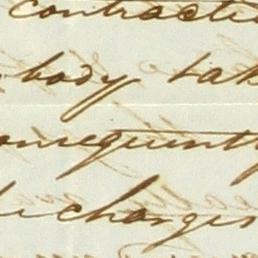 contracte
body tak
onsequently
he charges